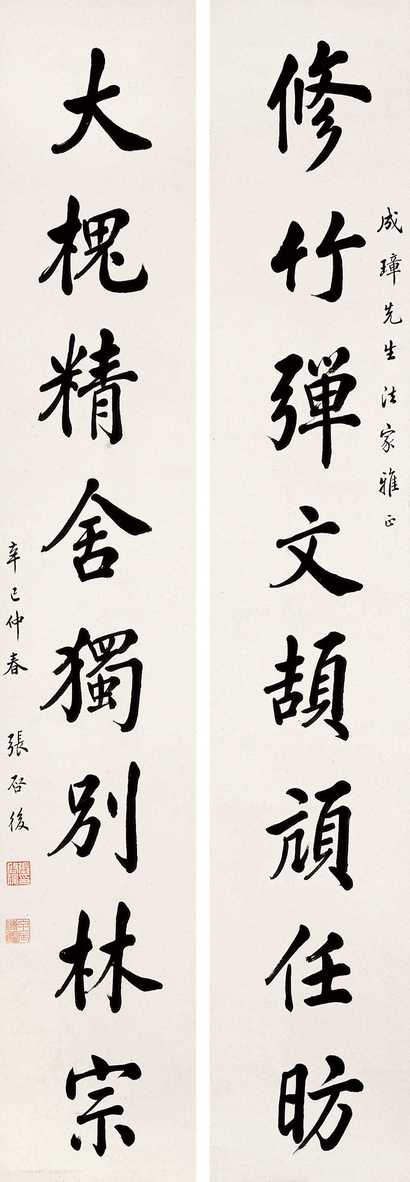 成璋先生法家雅正
修竹彈文頡頏任昉
大槐精舍獨別林宗
辛巳仲春 張啓後